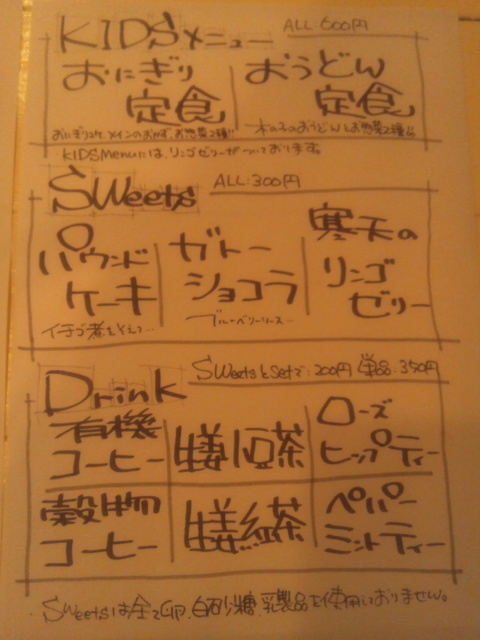 KIDSメニュー ALL:600円
おにぎり
定食
おうどん
定食
おにぎり2ケ、メインのおかず、お惣菜2種!!
木の子のおうどんとお惣菜2種!!
・KIDS Menuには、リンゴゼリーがついております。
Sweets ALL:300円
パウンド
ケーキ
イチゴ煮をそえて…
ガトー
ショコラ
ブルーベリーソース…
寒天の
リンゴ
ゼリー
Drink Sweetsとsetで:200円 単品:350円
有機
コーヒー
生姜豆茶
ローズ
ヒップティー
穀物
コーヒー
生姜紅茶
ペパー
ミントティー
・Sweetsは全て卵、白砂糖、乳製品を使用しておりません。